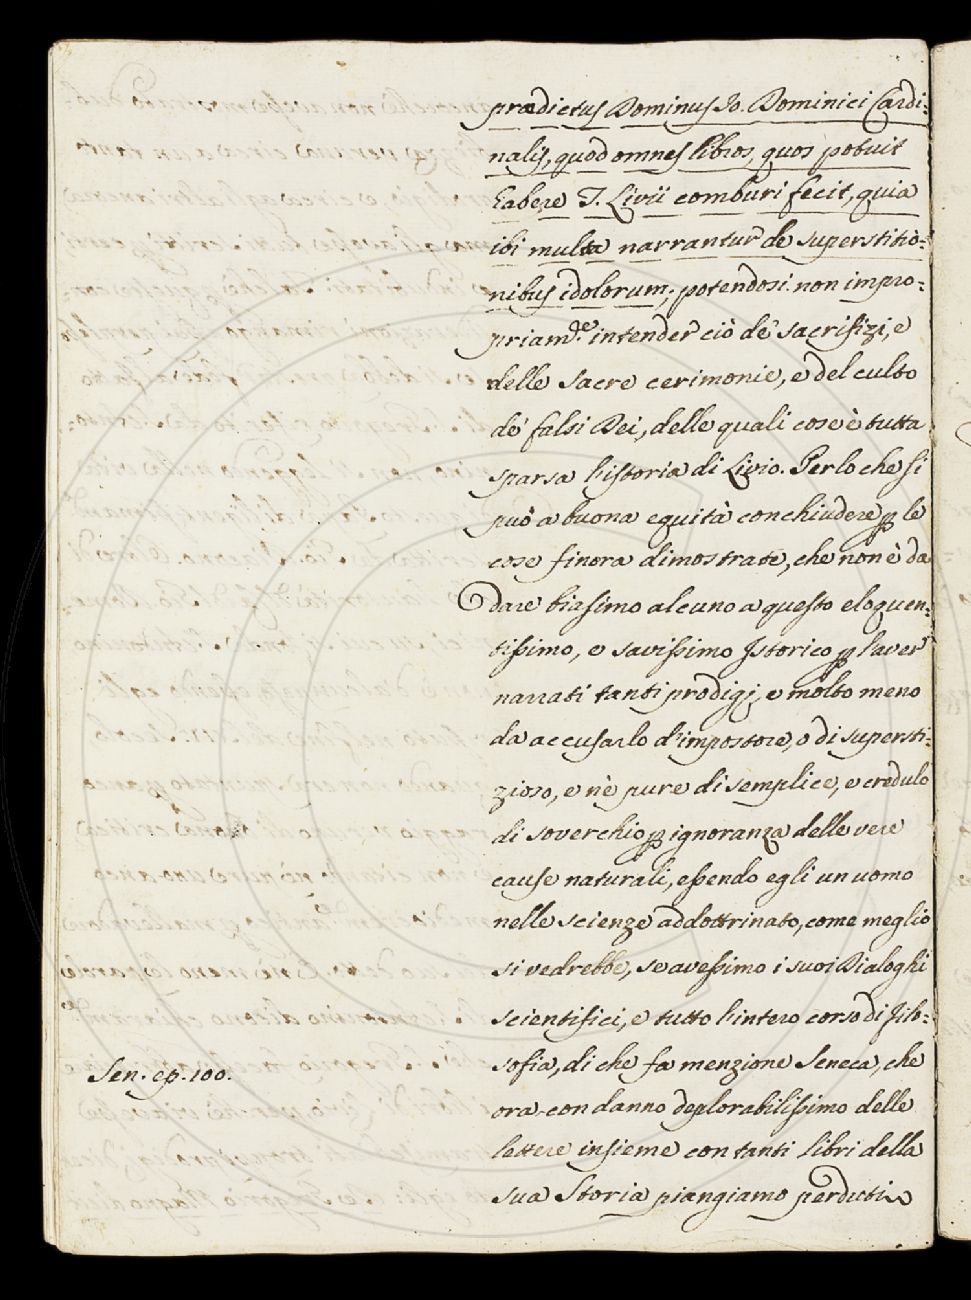 prædictus Dominus Jo. Dominici Cardi-
nalis, quod omnes libros, quos potuit
habere T. Livii comburi fecit, quia
ibi multa narrantur de superstitio-
nibus idolorum; potendosi non impro-
priam.te intender ciò de' sacrifizi, e
delle sacre cerimonie, e del culto
de' falsi Dei, delle quali cose è tutta
sparsa historia di Livio. Perlo che si
può a buona equità conchiudere p le
cose finora dimostrate, che non è da
dare biasimo alcuno a questo eloquen-
tissimo, e savissimo Istorico p l'aver
narrati tanti prodigj, e molto meno
da accusarlo d'impostore, o di supersti-
zioso, e nè pure di semplice, e credulo
di soverchio p ignoranza delle vere
cause naturali, essendo egli un uomo
nelle scienze addottrinato, come meglio
si vedrebbe, se avessimo i suoi Dialoghi
scientifici, e tutto l'intero corso di Filo-
sofia, di che fa menzione Seneca, che
Sen. ep. 100.
ora con danno deplorabilissimo delle
lettere insieme con tanti libri della
sua Storia piangiamo perduti